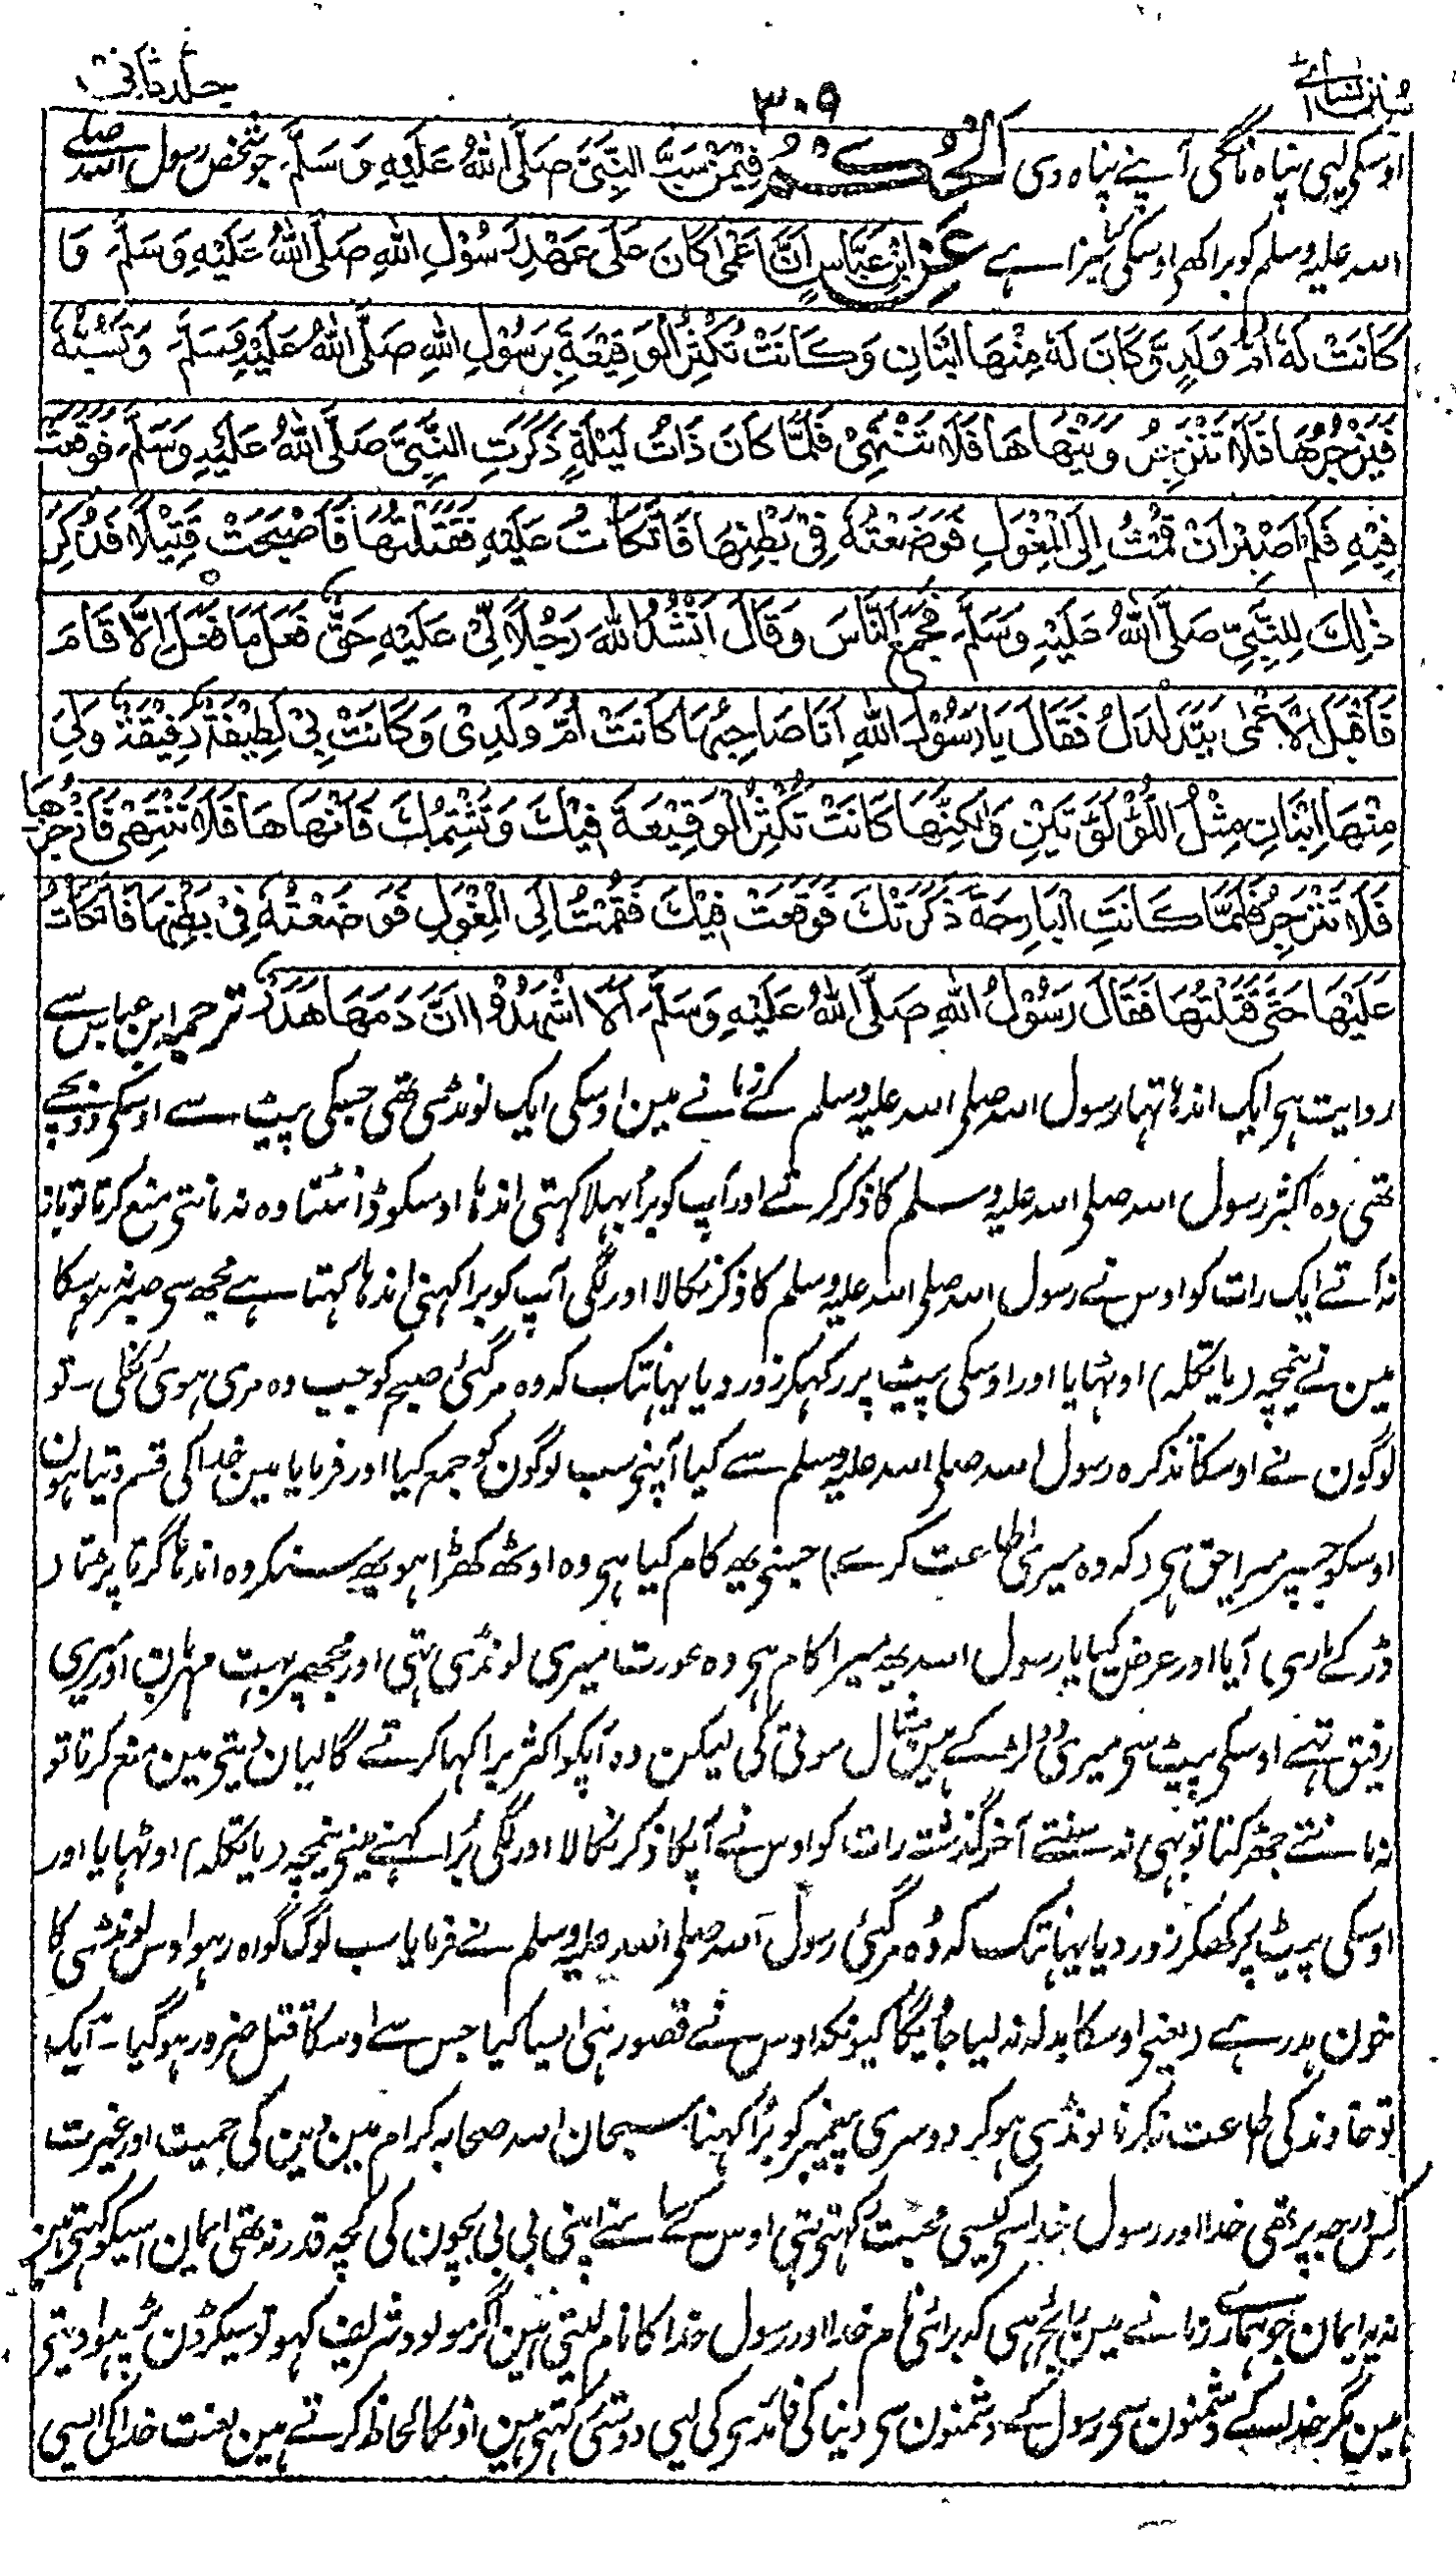 سنن نسائی ۳۰۹ جلد ثانی
اوسکی لیی پناہ مانگی آپنے پناہ دی اَلْحُكْمُ فِيْمَنْ سَبَّ النَّبِيَّ صَلَّى اللهُ عَلَيْهِ وَسَلَّمَ جو شخص رسول اللہ صلی
اللہ علیہ وسلم کو برا کہی اوسکی کیا سزا ہے عَنِ ابْنِ عَبَّاسٍ اَنَّ اَعْمٰى كَانَ عَلٰى عَهْدِ رَسُوْلِ اللهِ صَلَّى اللهُ عَلَيْهِ وَسَلَّمَ وَ
كَانَتْ لَهٗ اُمُّ وَلَدٍ وَّكَانَ لَهٗ مِنْهَا ابْنَانِ وَكَانَتْ تُكْثِرُ الْوَقِيْعَةَ بِرَسُوْلِ اللهِ صَلَّى اللهُ عَلَيْهِ وَسَلَّمَ وَتَسُبُّهٗ
فَيَزْجُرُهَا فَلَا تَنْزَجِرُ وَيَنْهَاهَا فَلَا تَنْتَهِيْ فَلَمَّا كَانَ ذَاتُ لَيْلَةٍ ذَكَرَتِ النَّبِيَّ صَلَّى اللهُ عَلَيْهِ وَسَلَّمَ فَوَقَعَتْ
فِيْهِ فَلَمْ اَصْبِرْ اَنْ قُمْتُ اِلَى الْمِغْوَلِ فَوَضَعْتُهٗ فِيْ بَطْنِهَا فَاتَّكَأْتُ عَلَيْهِ فَقَتَلْتُهَا فَاَصْبَحَتْ قَتِيْلًا فَذُكِرَ
ذٰلِكَ لِلنَّبِيِّ صَلَّى اللهُ عَلَيْهِ وَسَلَّمَ فَجَمَعَ النَّاسَ وَقَالَ اَنْشُدُ اللهَ رَجُلًا لِّيْ عَلَيْهِ حَقٌّ فَعَلَ مَا فَعَلَ اِلَّا قَامَ
فَاَقْبَلَ الْاَعْمٰى يَتَدَلْدَلُ فَقَالَ يَا رَسُوْلَ اللهِ اَنَا صَاحِبُهَا كَانَتْ اُمَّ وَلَدِيْ وَكَانَتْ بِيْ لَطِيْفَةً رَفِيْقَةً وَلِيَ
مِنْهَا ابْنَانِ مِثْلُ اللُّؤْلُؤَتَيْنِ وَلٰكِنَّهَا كَانَتْ تُكْثِرُ الْوَقِيْعَةَ فِيْكَ وَتَشْتِمُكَ فَاَنْهَاهَا فَلَا تَنْتَهِيْ فَاَزْجُرُهَا
فَلَا تَنْزَجِرُ فَلَمَّا كَانَتِ الْبَارِحَةَ ذَكَرَتْكَ فَوَقَعَتْ فِيْكَ فَقُمْتُ اِلَى الْمِغْوَلِ فَوَضَعْتُهٗ فِيْ بَطْنِهَا فَاتَّكَأْتُ
عَلَيْهَا حَتّٰى قَتَلْتُهَا فَقَالَ رَسُوْلُ اللهِ صَلَّى اللهُ عَلَيْهِ وَسَلَّمَ اَلَا اشْهَدُوْا اَنَّ دَمَهَا هَدَرٌ ترجمہ ابن عباس سے
روایت ہی ایک اندہا تہا رسول اللہ صلی اللہ علیہ وسلم کے زمانے مین اوسکی ایک لونڈی تھی جسکی پیٹ سے اوسکی دو بچے
تھی وہ اکثر رسول اللہ صلی اللہ علیہ وسلم کا ذکر کرتے اور آپ کو برا بہلا کہتی اندہا اوسکو ڈانٹتا وہ نہ مانتی منع کرتا تو باز
نہ آتے ایک رات کو اوس نے رسول اللہ صلی اللہ علیہ وسلم کا ذکر نکالا اور لگی آپ کو برا کہنی اندہا کہتا ہے مجھ سی صبر نہ ہوسکا
مین نے نیمچہ (یا تکلہ) اوٹہایا اور اوسکی پیٹ پر رکہکر زور دیا یہانتک کہ وہ مرگئی صبح کو جب وہ مری ہوئی نکلی۔ تو
لوگون نے اوسکا تذکرہ رسول اللہ صلی اللہ علیہ وسلم سے کیا آپنی سب لوگون کو جمع کیا اور فرمایا مین خدا کی قسم دیتا ہون
اوسکو جسپر میرا حق ہی (کہ وہ میری اطاعت کرے) جسنی یہ کام کیا ہی وہ اوٹھ کھڑا ہو یہ سنکر وہ اندہا گرتا پڑتا (
ڈر کے ماری) آیا اور عرض کیا یا رسول اللہ یہ میرا کام ہی وہ عورت میری لونڈی تہی اور مجھپر بہت مہربان اور میری
رفیق تہے اوسکی پیٹ سی میری دو لڑکے ہین مثال موتی کی لیکن وہ آپکو اکثر برا کہا کرتے گالیان دیتی مین منع کرتا تو
نہ مانتے جھڑکتا تو بہی نہ سنتے آخر گذشتہ رات کو اوس نے آپکا ذکر نکالا اور لگی برا کہنے مینی نیمچہ (یا تکلہ) اوٹہایا اور
اوسکی پیٹ پر رکھکر زور دیا یہانتک کہ وہ مرگئی رسول اللہ صلی اللہ علیہ وسلم نے فرمایا سب لوگ گواہ رہو اوس لونڈی کا
خون ہدر ہے (یعنی اوسکا بدلہ نہ لیا جائیگا کیونکہ اوس نے قصور ہی ایسا کیا جس سے اوسکا قتل ضرور ہوگیا۔ ایک
تو خاوند کی اطاعت نکرنا لونڈی ہوکر دوسری پیغمبر کو برا کہنا سبحان اللہ صحابہ کرام مین دین کی حمیت اور غیرت
کس درجہ پر تھی خدا اور رسول خدا سی کیسی محبت رکہتی تہی اوس کے سامنے اپنی بی بی بچون کی کچہ قدر نہ تھی ایمان اسیکو کہتی ہین
نہ یہ ایمان جو ہماری زمانے مین رائج ہی کہ برائی نام خدا اور رسول خدا کا نام لیتی ہین اگر مولود شریف کہو تو سیکڑون پڑہوا دیتی
ہین مگر خدا کے دشمنون سی رسول کے دشمنون سی دنیا کی فائدی کی لیی دوستی رکہتی ہین اونکا لحاظ کرتے ہین لعنت خدا کی ایسی